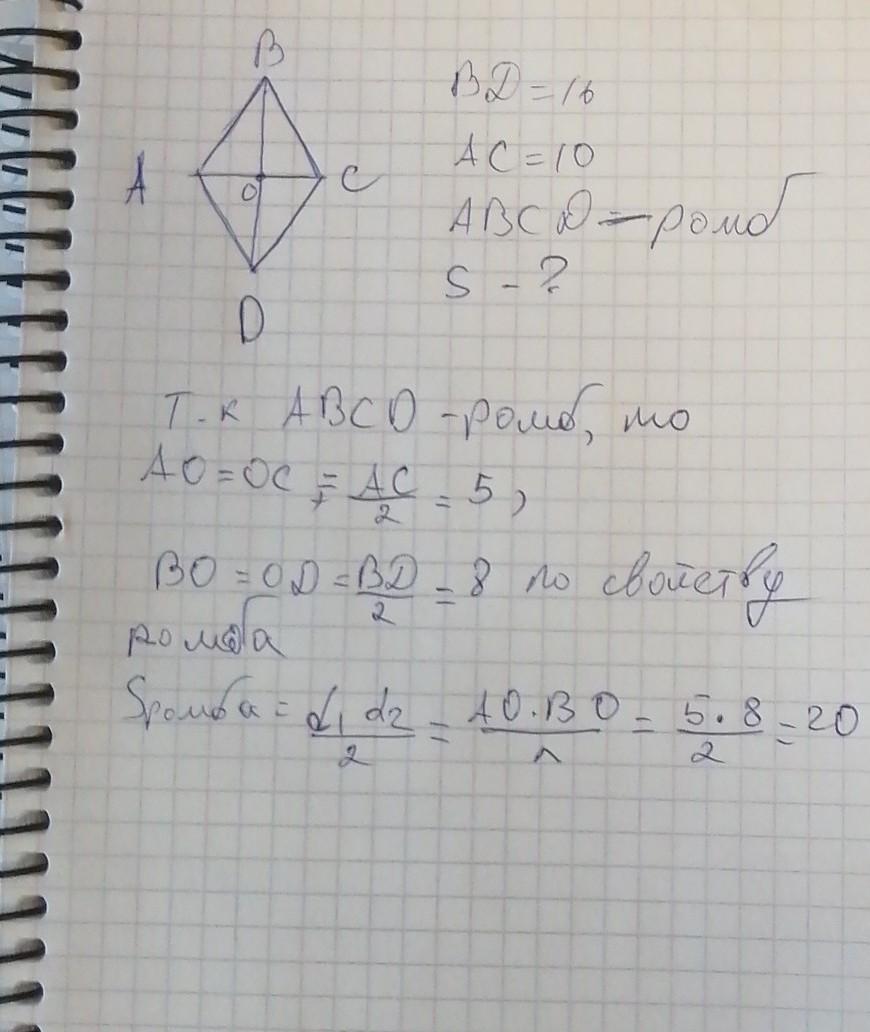 B
A
O
C
D
BD = 16
AC = 10
ABCD — ромб
S - ?
Т.к ABCD - ромб, то
AO = OC = AC/2 = 5,
BO = OD = BD/2 = 8 по свойству
ромба
Sромба = d1 d2/2 = AO · BO/2 = 5 · 8/2 = 20